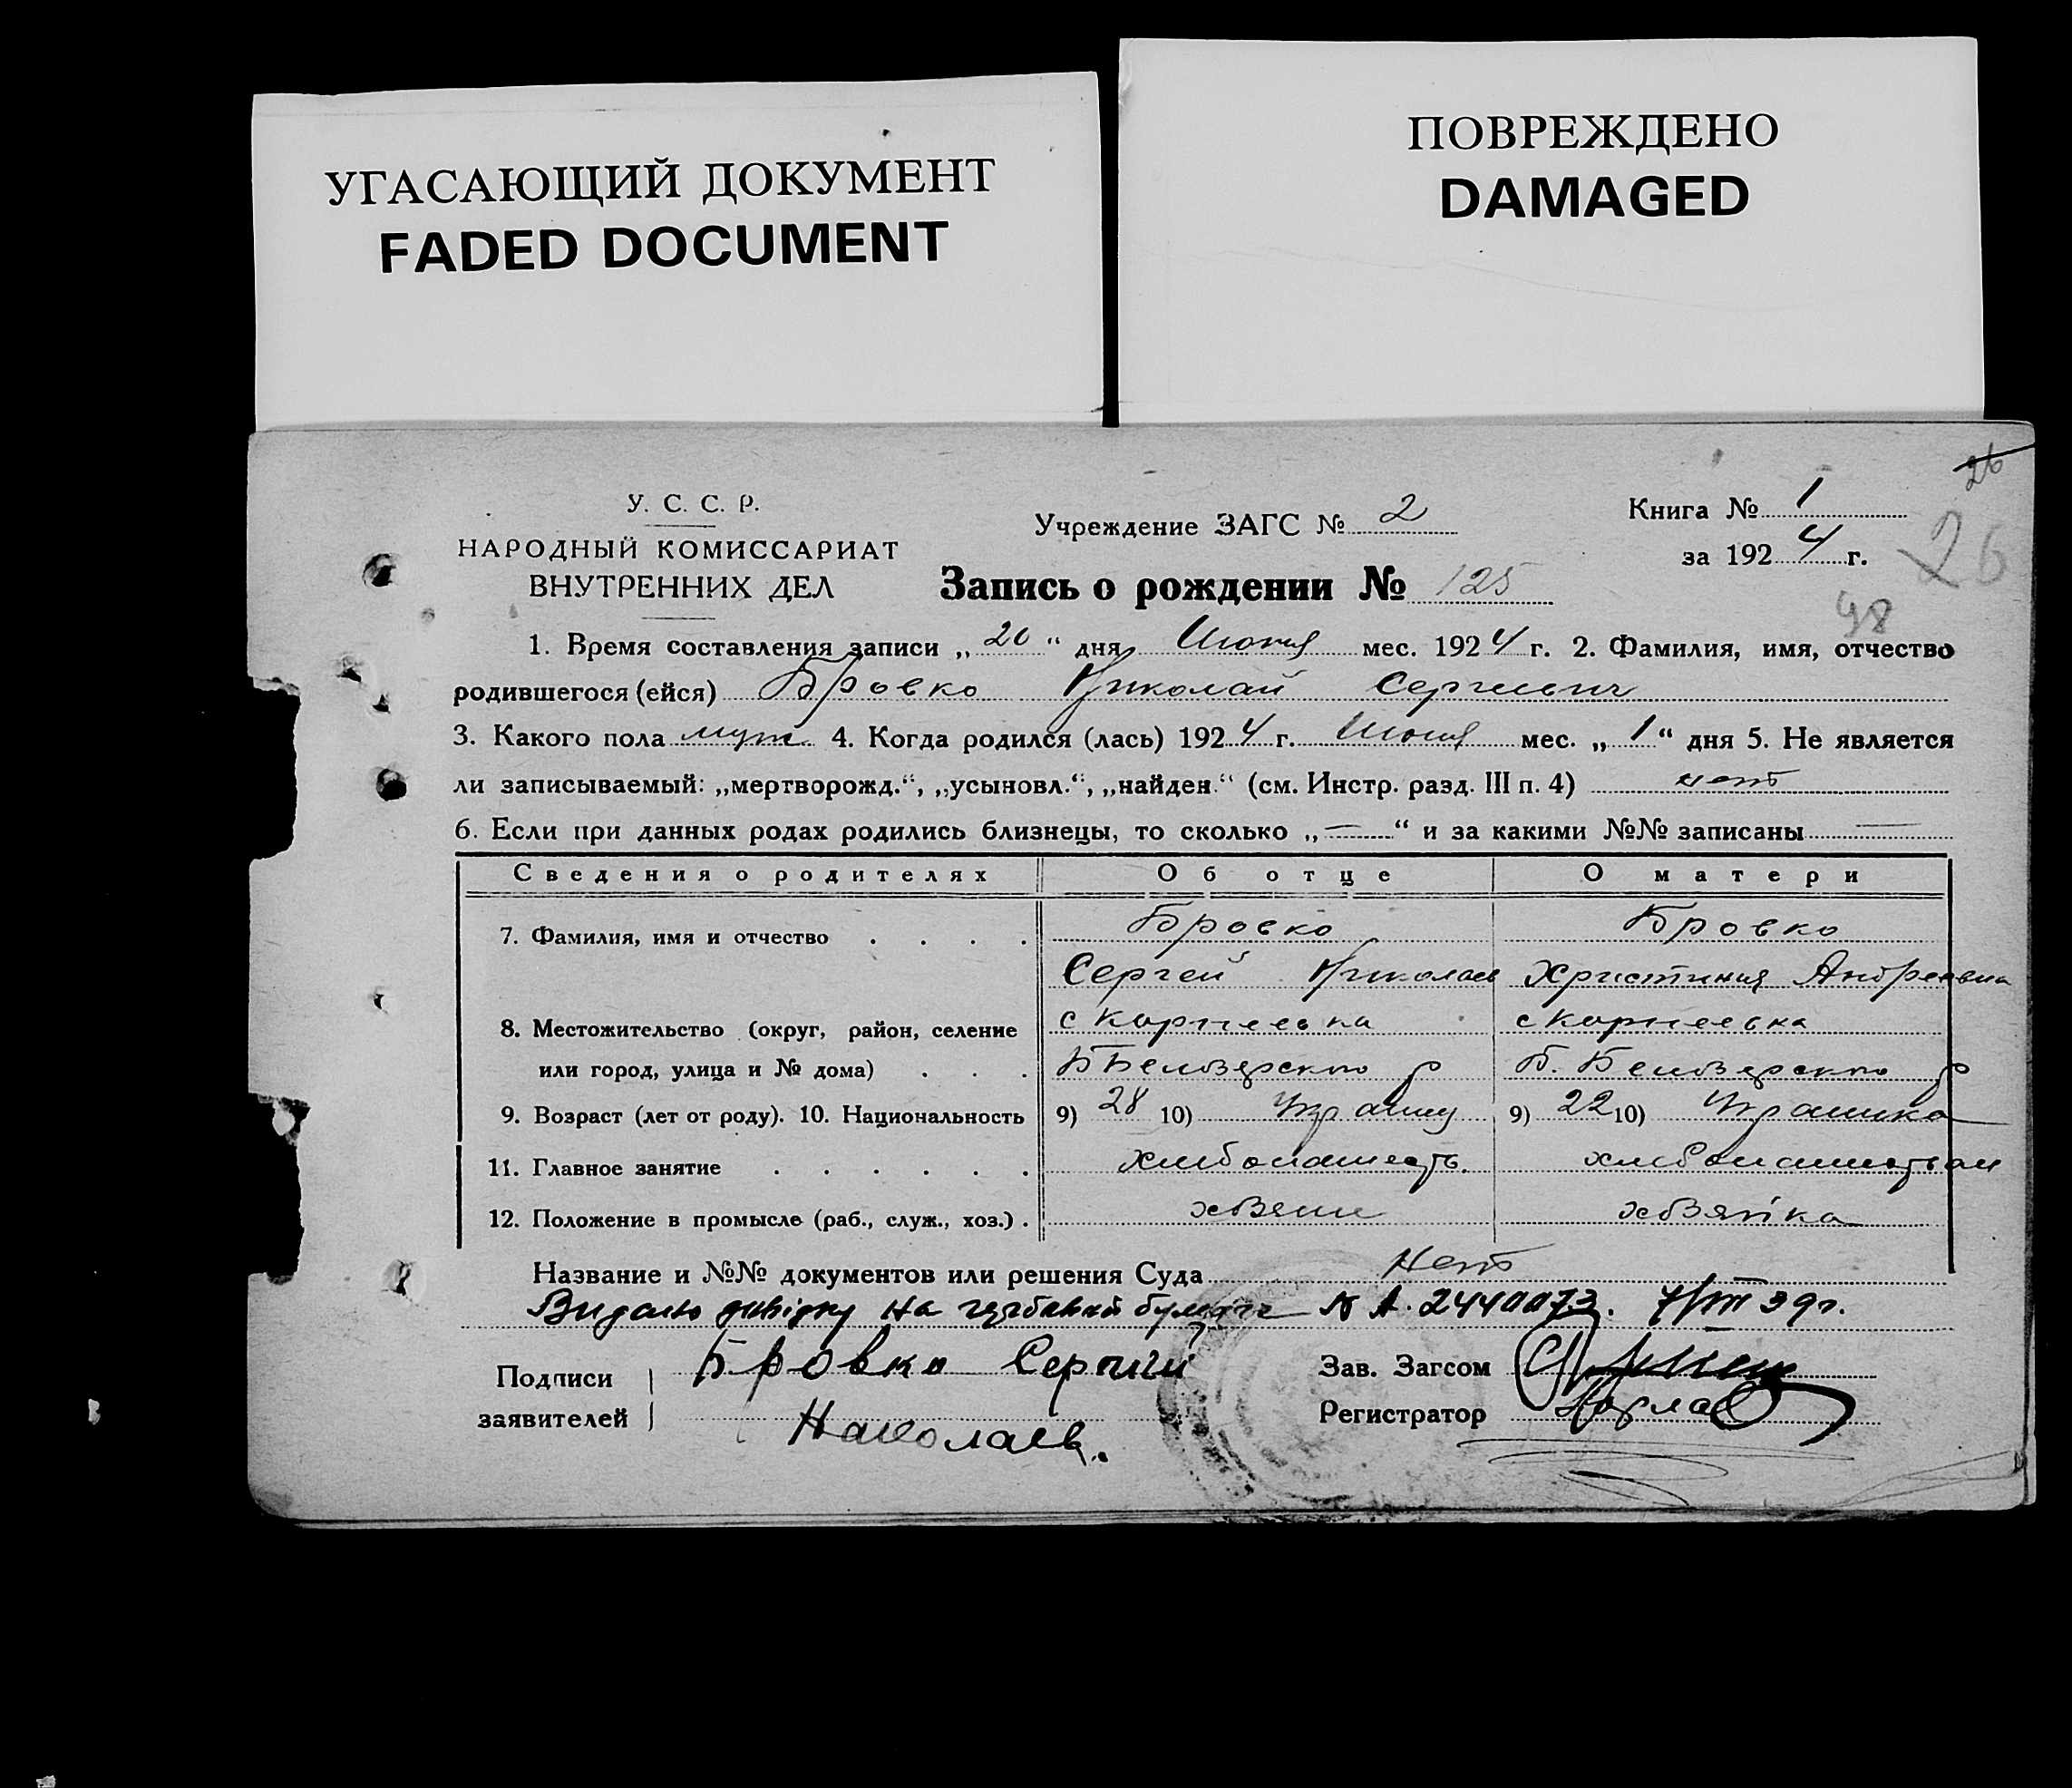 УГАСАЮЩИЙ ДОКУМЕНТ
FADED DOCUMENT
ПОВРЕЖДЕНО
DAMAGED
26
У. С. С. Р.
НАРОДНЫЙ КОМИССАРИАТ
ВНУТРЕННИХ ДЕЛ
Учреждение ЗАГС № 2
Книга № 1
за 1924 г.
26
Запись о рождении № 125
98
1. Время составления записи „20“ дня Июня мес. 1924 г. 2. Фамилия, имя, отчество
родившегося (ейся) Бровко Николай Сергеевич
3. Какого пола муж 4. Когда родился (лась) 1924 г. Июня мес. „1“ дня 5. Не является
ли записываемый: „мертворожд.“, „усыновл.“, „найден.“ (см. Инстр. разд. III п. 4) нет
6. Если при данных родах родились близнецы, то сколько „—“ и за какими №№ записаны —
Сведения о родителях Об отце О матери
7. Фамилия, имя и отчество . . . . Бровко Бровко
Сергей Николаев Христиния Андреевна
8. Местожительство (округ, район, селение с Корнеевка с Корнеевка
или город, улица и № дома) . . . Б Белозерского р Б. Белозерского р
9. Возраст (лет от роду). 10. Национальность 9) 28 10) 9) 22 10)
11. Главное занятие . . . . . .
12. Положение в промысле (раб., служ., хоз.) . хозяин хозяйка
Название и №№ документов или решения Суда Нет
на гербовой бумаге № А. 2440073. 7/VIII 39г.
Подписи Бровко Сергий Зав. Загсом
заявителей Николаев. Регистратор